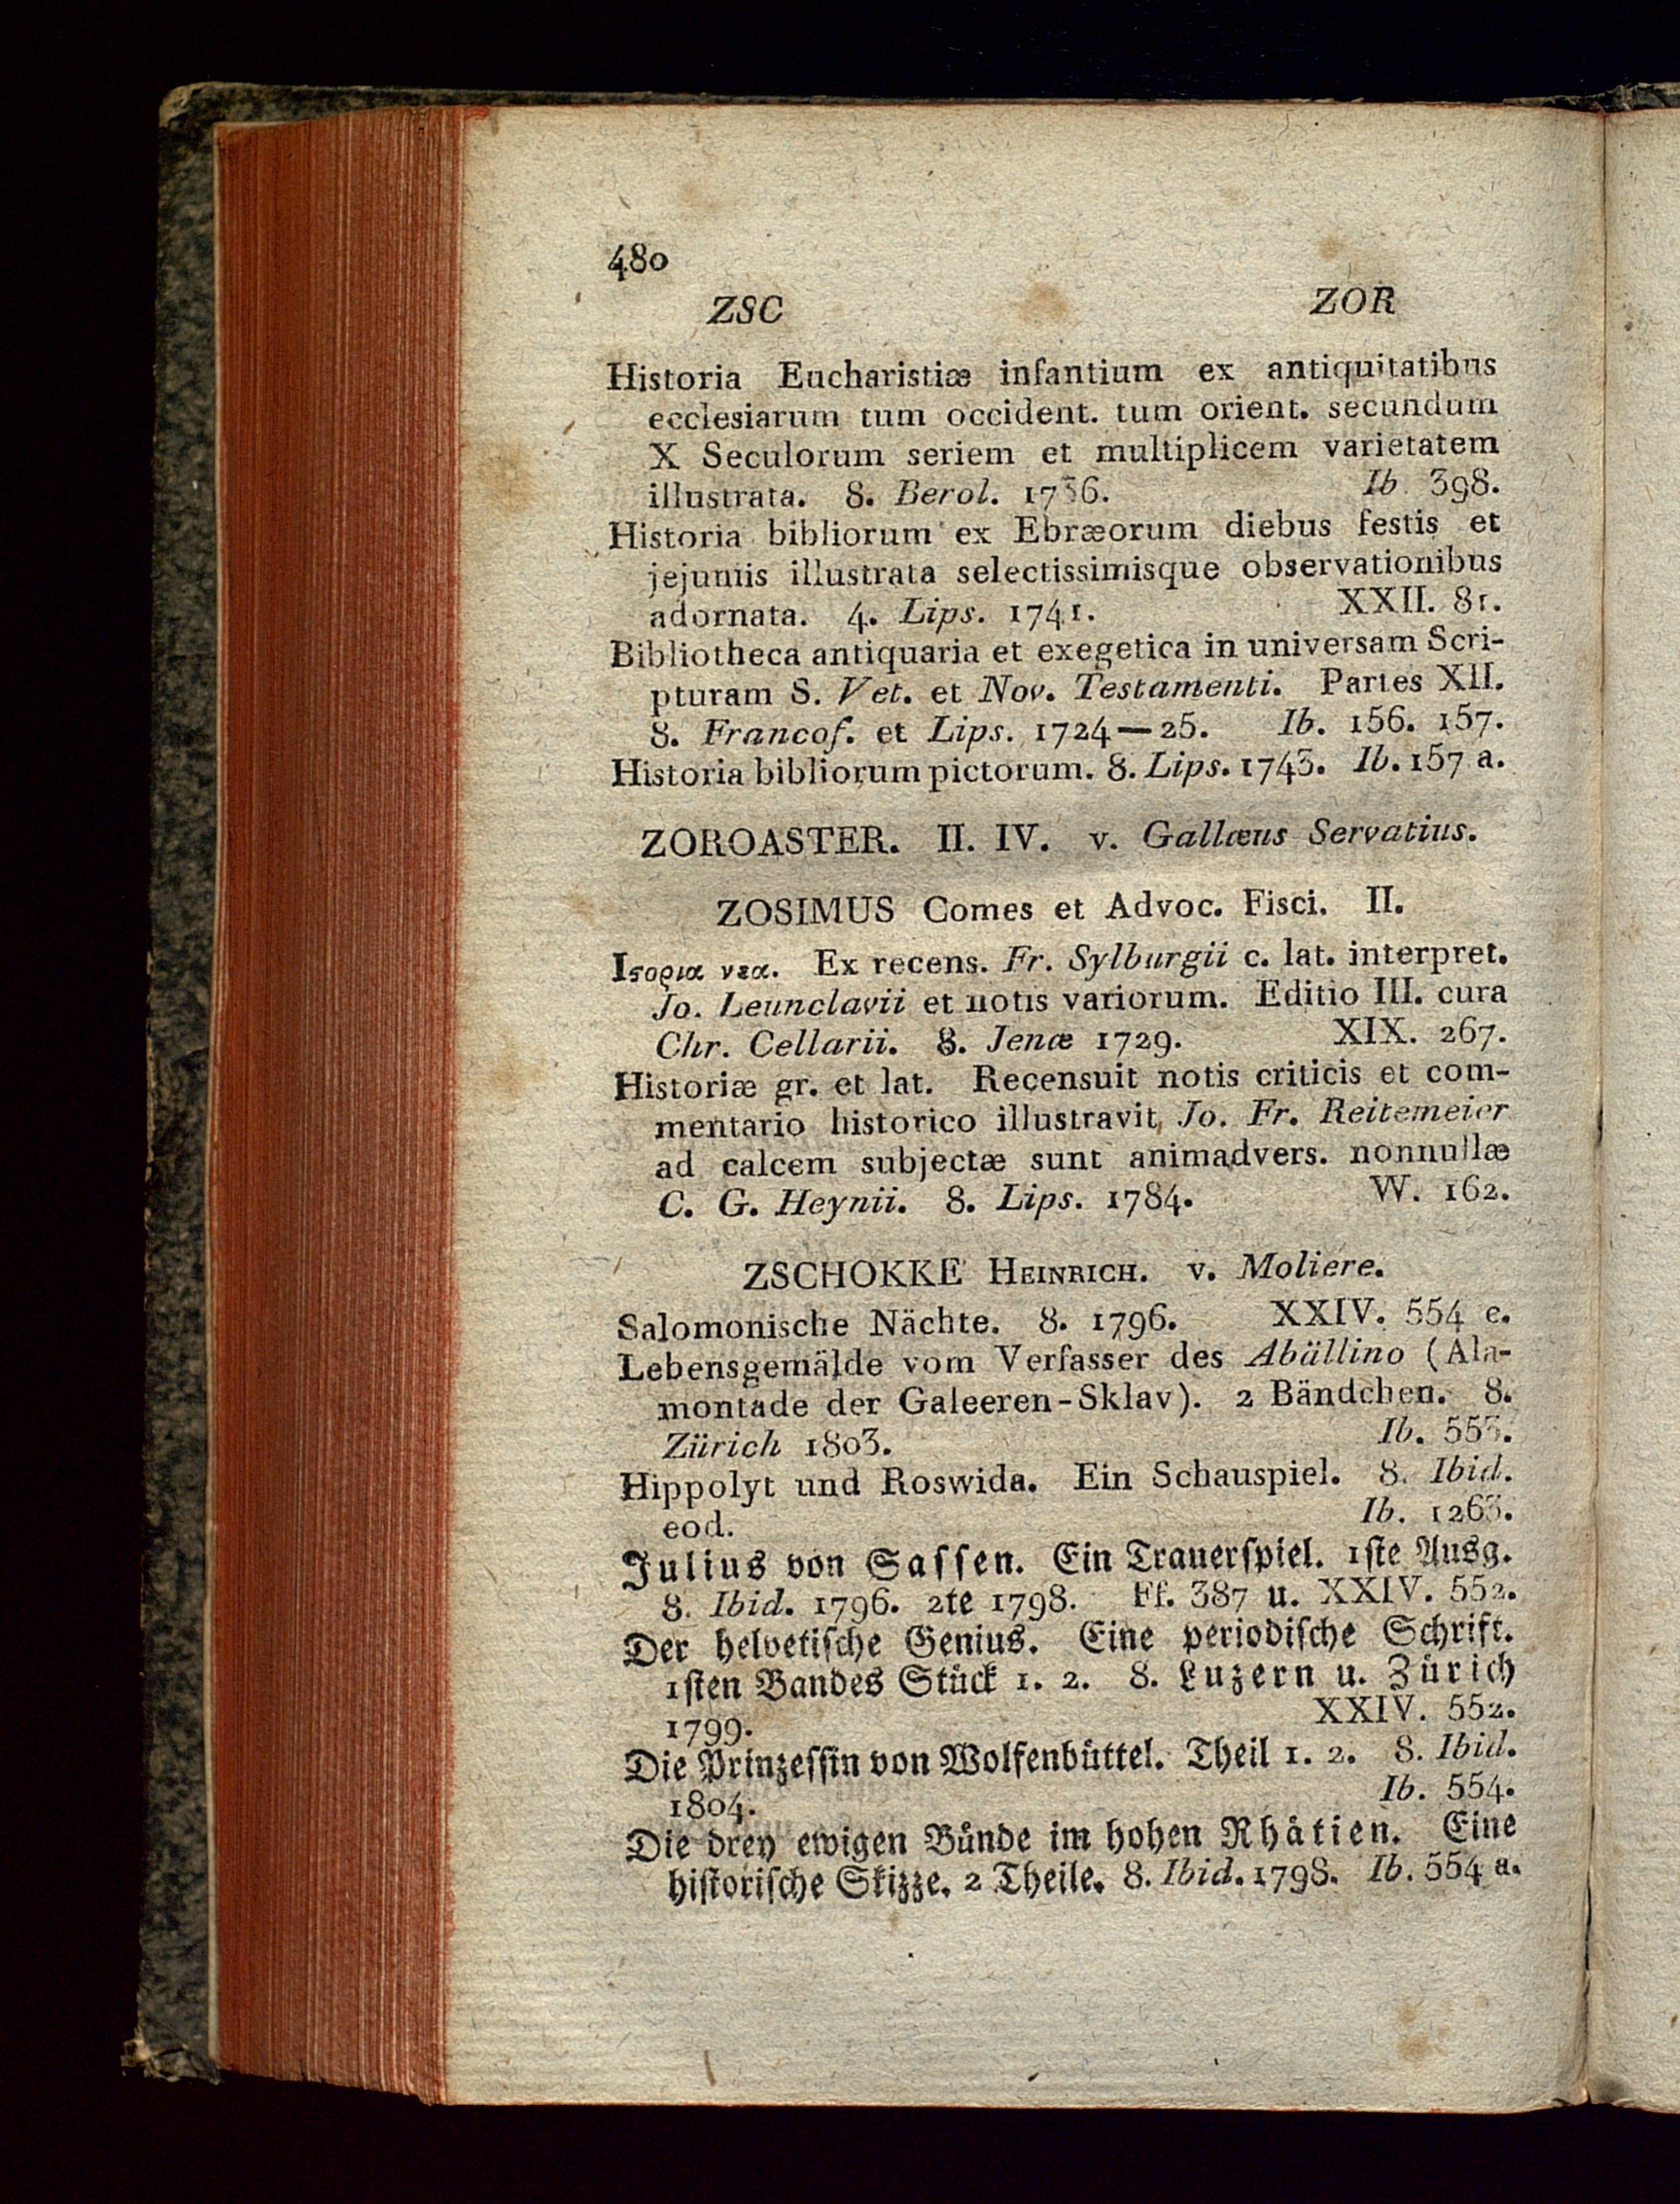 480
ZSC ZOR
Historia Eucharistiæ infantium ex antiquitatibus
ecclesiarum tum occident. tum orient. secundum
X Seculorum seriem et multiplicem varietatem
illustrata. 8. Berol. 1736. Ib. 398.
Historia bibliorum ex Ebræorum diebus festis et
jejuniis illustrata selectissimisque observationibus
adornata. 4. Lips. 1741. XXII. 81.
Bibliotheca antiquaria et exegetica in universam Scri-
pturam S. Vet. et Nov. Testamenti. Partes XII.
8. Francof. et Lips. 1724—25. Ib. 156. 157.
Historia bibliorum pictorum. 8. Lips. 1743. Ib. 157 a.
ZOROASTER. II. IV. v. Gallæus Servatius.
ZOSIMUS Comes et Advoc. Fisci. II.
Iϛορια νεα. Ex recens. Fr. Sylburgii c. lat. interpret.
Jo. Leunclavii et notis variorum. Editio III. cura
Chr. Cellarii. 8. Jenæ 1729. XIX. 267.
Historiæ gr. et lat. Recensuit notis criticis et com-
mentario historico illustravit, Jo. Fr. Reitemeier
ad calcem subjectæ sunt animadvers. nonnullæ
C. G. Heynii. 8. Lips. 1784. W. 162.
ZSCHOKKE HEINRICH. v. Moliere.
Salomonische Nächte. 8. 1796. XXIV. 554 e.
Lebensgemälde vom Verfasser des Abällino (Ala-
montade der Galeeren-Sklav). 2 Bändchen. 8.
Zürich 1803. Ib. 553.
Hippolyt und Roswida. Ein Schauspiel. 8. Ibid.
eod. Ib. 1263.
Julius von Sassen. Ein Trauerspiel. 1ste Ausg.
8. Ibid. 1796. 2te 1798. Ff. 387 u. XXIV. 552.
Der helvetische Genius. Eine periodische Schrift.
1sten Bandes Stück 1. 2. 8. Luzern u. Zürich
1799. XXIV. 552.
Die Prinzessin von Wolfenbüttel. Theil 1. 2. 8. Ibid.
1804. Ib. 554.
Die drey ewigen Bünde im hohen Rhätien. Eine
historische Skizze. 2 Theile. 8. Ibid. 1798. Ib. 554 a.